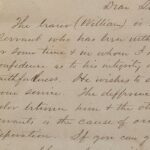 Dear Si
The bearer (William) is
servant who has been with
for some time & in whom I
confidence as to his integrity
faithfulness. He wishes to
some service. The difference
between him & the oth
servants is the cause of our
separation. If you can g